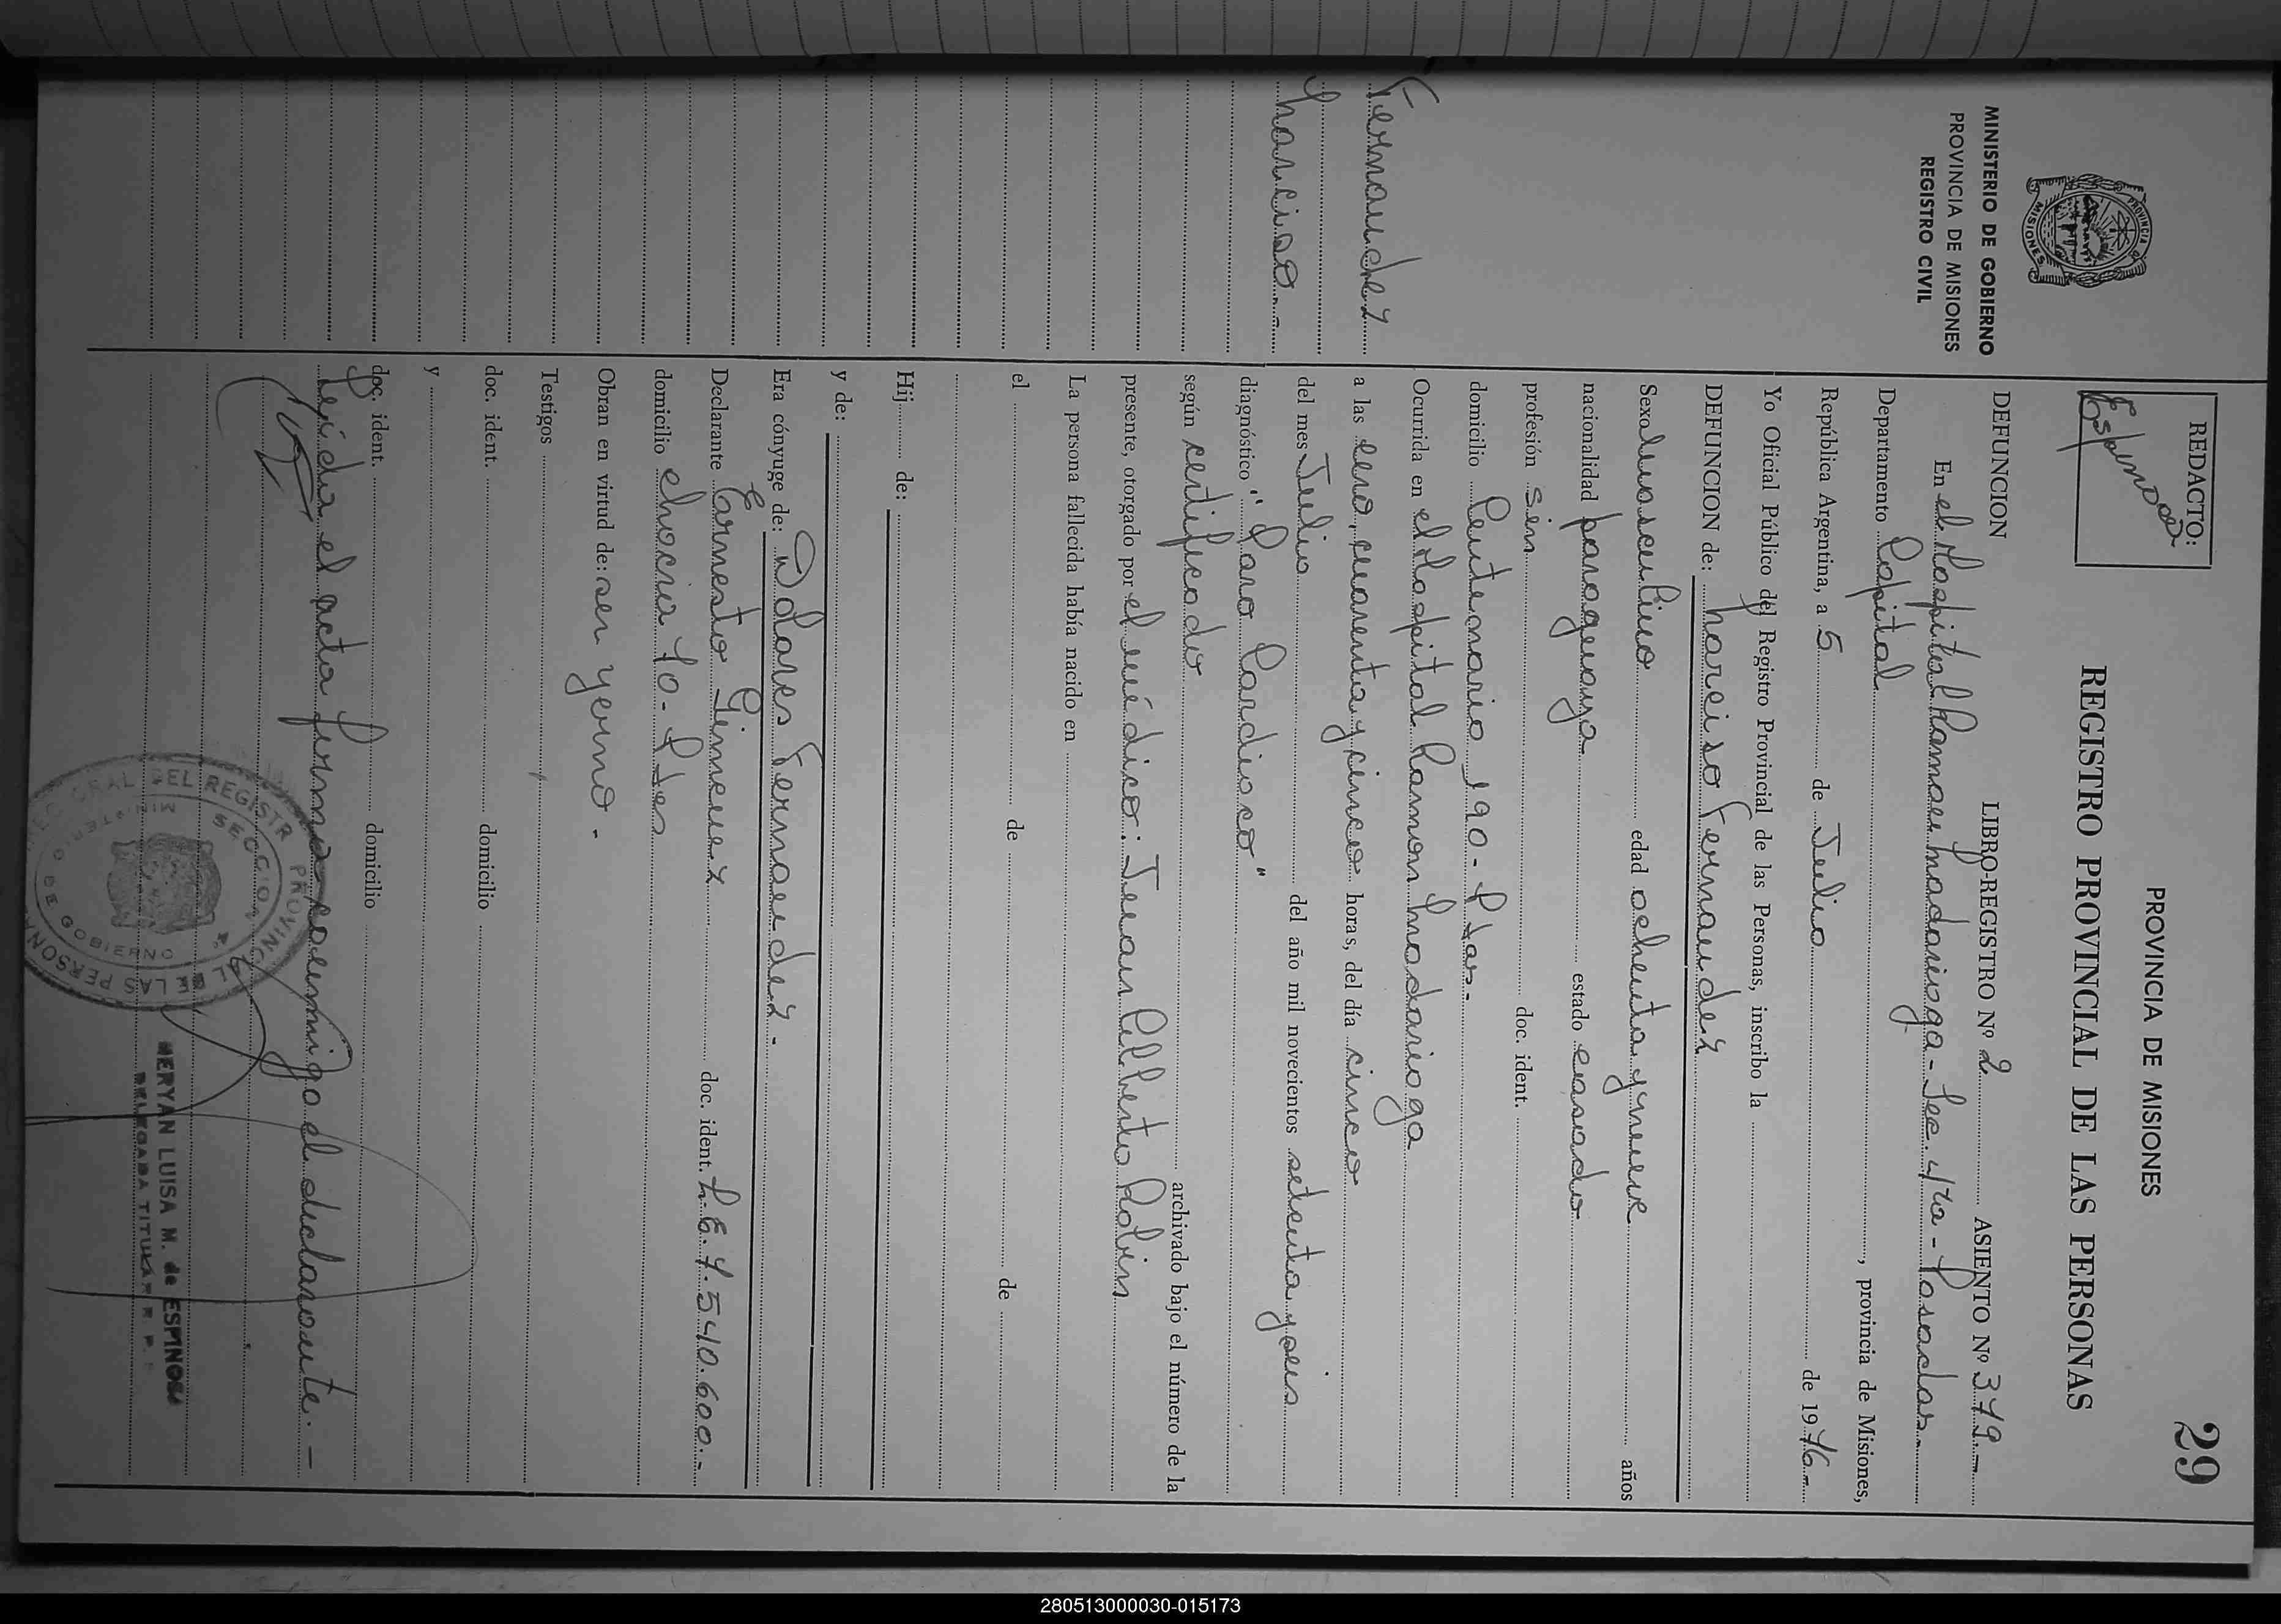 29
PROVINCIA DE MISIONES
REGISTRO PROVINCIAL DE LAS PERSONAS
REDACTO:
Espinosa
PROVINCIA DE MISIONES
MINISTERIO DE GOBIERNO
PROVINCIA DE MISIONES
REGISTRO CIVIL
DEFUNCION LIBRO-REGISTRO Nº 2 ASIENTO Nº 379.-
En el Hospital Ramon Madariaga - Sec. 4ta - Posadas.-
Departamento Capital, provincia de Misiones,
República Argentina, a 5 de Julio de 1976.-
Yo Oficial Público del Registro Provincial de las Personas, inscribo la
DEFUNCION de: Narciso Fernandez
Sexo masculino edad ochenta y nueve años
nacionalidad paraguaya estado casado
profesión sin doc. ident.
domicilio Centenario 190 - Pdas.-
Ocurrida en el Hospital Ramon Madariaga
a las cero, cuarenta y cinco horas, del día cinco
del mes Julio del año mil novecientos setenta y seis
diagnóstico "Paro Cardiaco"
según certificado archivado bajo el número de la
presente, otorgado por el médico: Juan Alberto Rolin
La persona fallecida había nacido en
el de de
Hij de:
y de:
Era cónyuge de: Dolores Fernandez.-
Declarante Ernesto Gimenez doc. ident. L.E. 7.540.600.-
domicilio Chacra 70 - Pdas
Obran en virtud de: ser yerno.-
Testigos
doc. ident. domicilio
y
doc. ident. domicilio
Leída el acta firma conmigo el declarante.-
Fernandez
Narciso.--
MERYAN LUISA M. de ESPINOSA
DELEGADA TITULAR R. P.
280513000030-015173